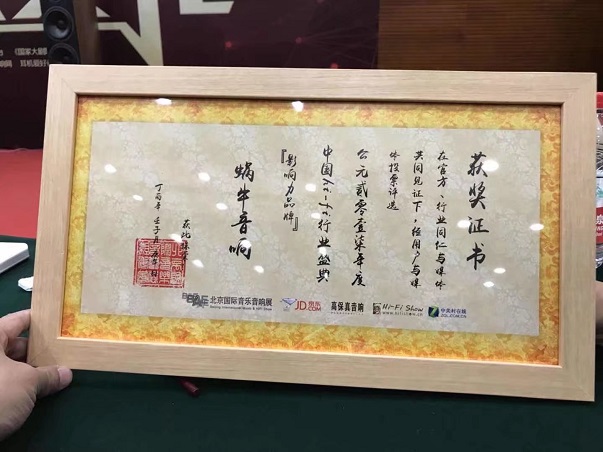 获奖证书
在官方、行业同仁与媒体
共同见证下，经用户与媒
体投票评选
公元贰零壹柒年度
中国Hi-Fi行业盛典
『影响力品牌』
蜗牛音响
获此殊荣
丁酉年
北京国际音乐音响展
JD京东
JD.COM
高保真音响
Hi-Fi Show
中关村在线
ZOL.COM.CN
《国家大剧
耳机最好